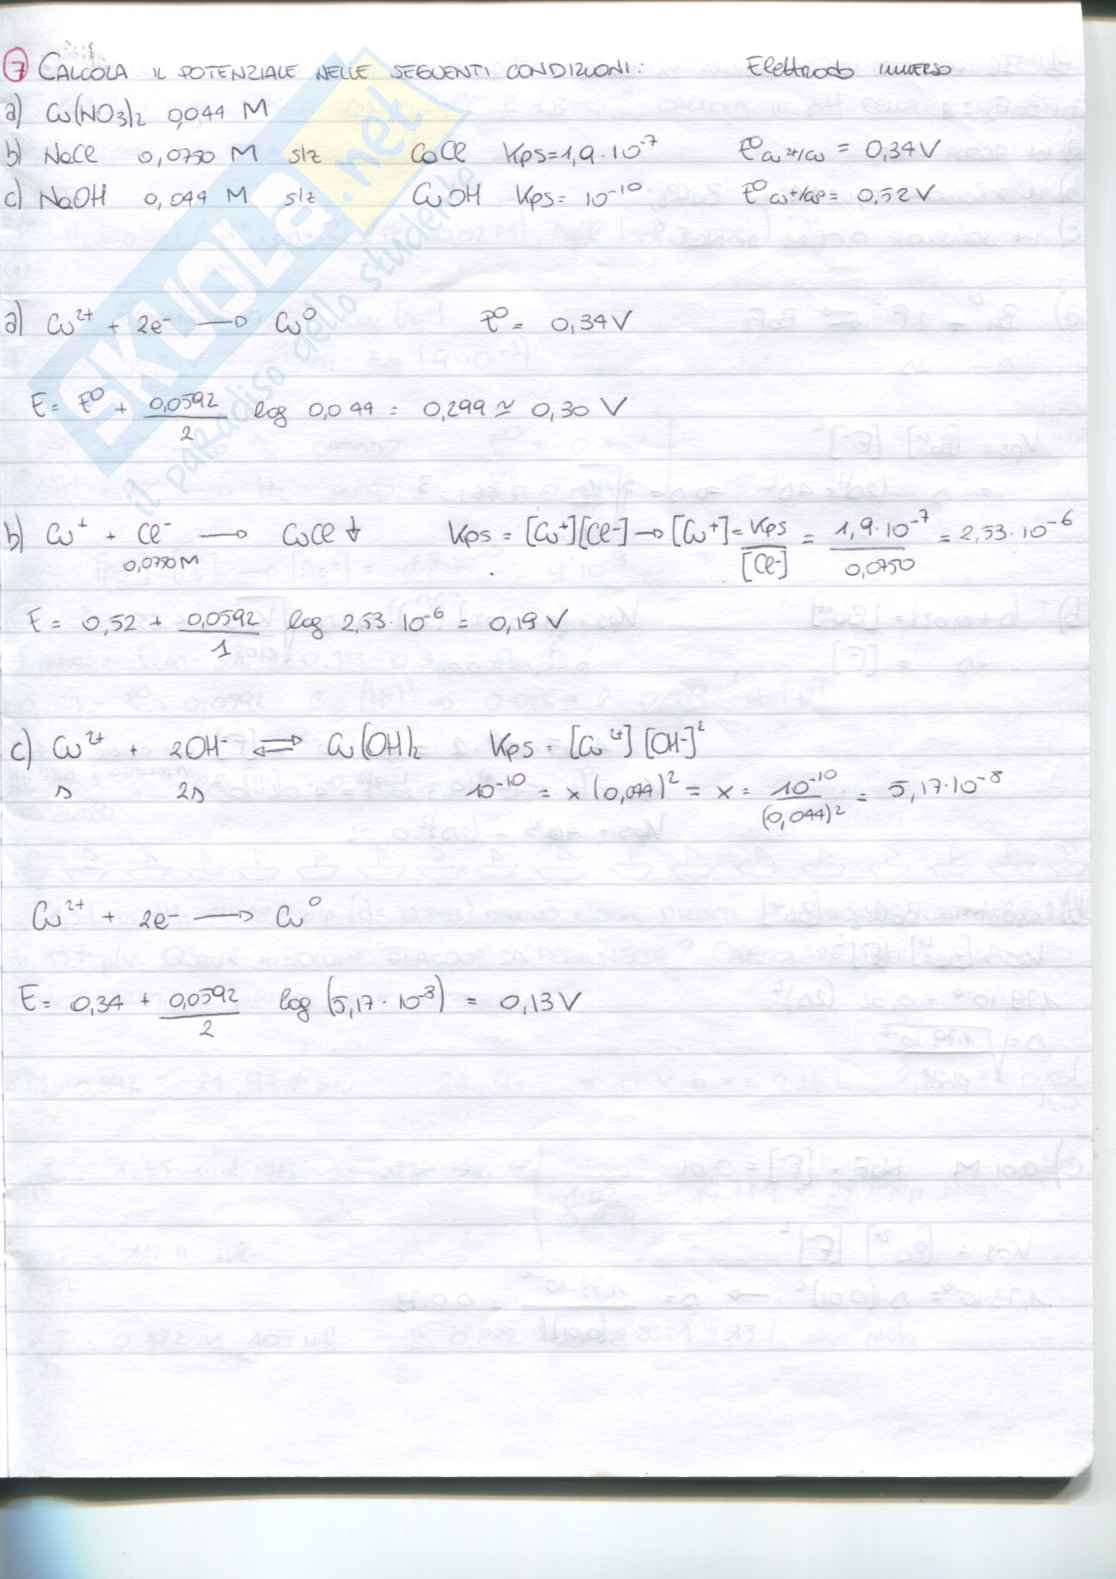 7 CALCOLA IL POTENZIALE NELLE SEGUENTI CONDIZIONI: Elettrodo IMMERSO
a) Cu(NO3)2 0,044 M
b) NaCl 0,0750 M slz CuCl Kps=1,9·10⁻⁷ E⁰Cu²⁺/Cu = 0,34V
c) NaOH 0,044 M slz CuOH Kps= 10⁻¹⁰ E⁰Cu⁺/Cu⁰= 0,52V
a) Cu²⁺ + 2e⁻ → Cu⁰ E⁰= 0,34V
E= E⁰ + 0,0592/2 log 0,044 = 0,299 ≃ 0,30 V
b) Cu⁺ + Cl⁻ → CuCl ↓ Kps = [Cu⁺][Cl⁻] → [Cu⁺]= Kps/[Cl⁻] = 1,9·10⁻⁷/0,0750 = 2,53·10⁻⁶
0,0750M
E= 0,52 + 0,0592/1 log 2,53·10⁻⁶ = 0,19 V
c) Cu²⁺ + 2OH⁻ ⇌ Cu(OH)2 Kps = [Cu²⁺][OH⁻]²
s 2s 10⁻¹⁰ = x (0,044)² = x = 10⁻¹⁰/(0,044)² = 5,17·10⁻⁸
Cu²⁺ + 2e⁻ → Cu⁰
E= 0,34 + 0,0592/2 log (5,17·10⁻⁸) = 0,13V
SKUOLA.net
il paradiso dello studente